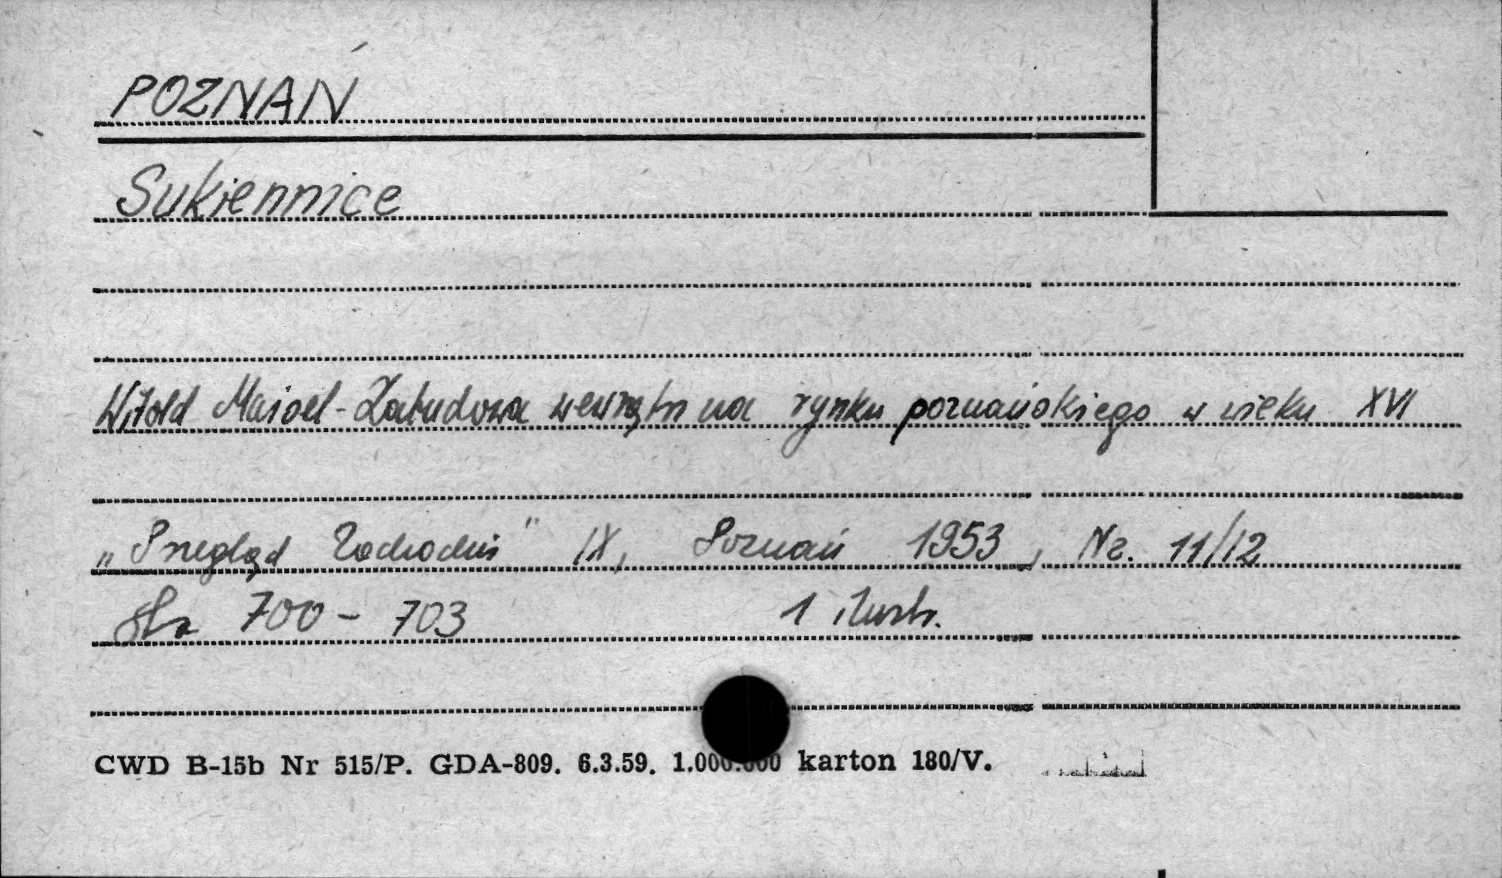 POZNAŃ
Sukiennice
Witold Maisel - Zabudowa wewnętrzna rynku poznańskiego w wieku XVI
„Przegląd Zachodni" IX, Poznań 1953, Nr. 11/12
Str 700 - 703 1 ilustr.
CWD B-15b Nr 515/P. GDA-809. 6.3.59. 1.000.000 karton 180/V.